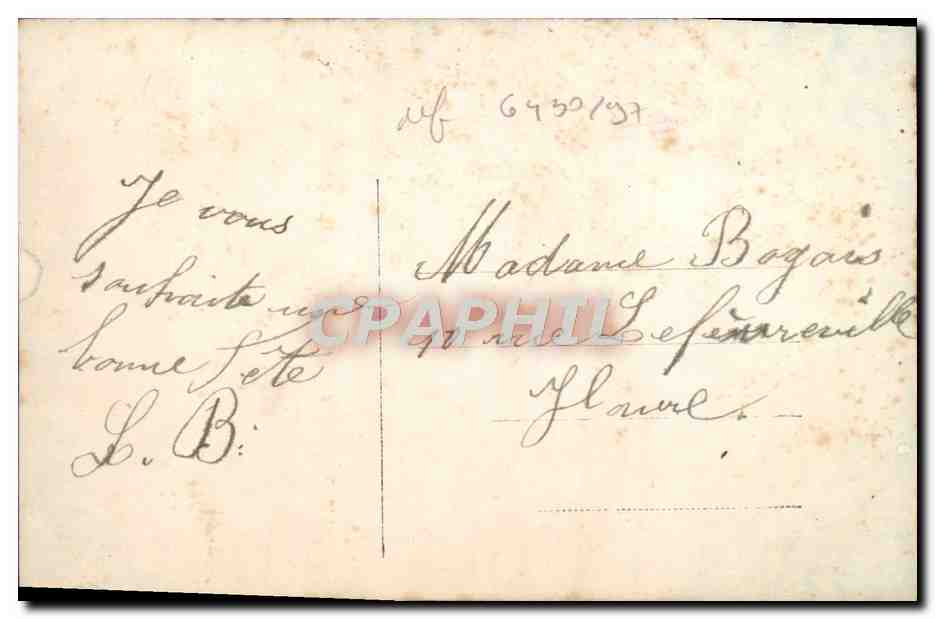 réf 6430/97
Je vous
souhaite une
bonne fête
L. B.
Madame Bogais
rue Lefèvreville
Havre.
CPAPHIL